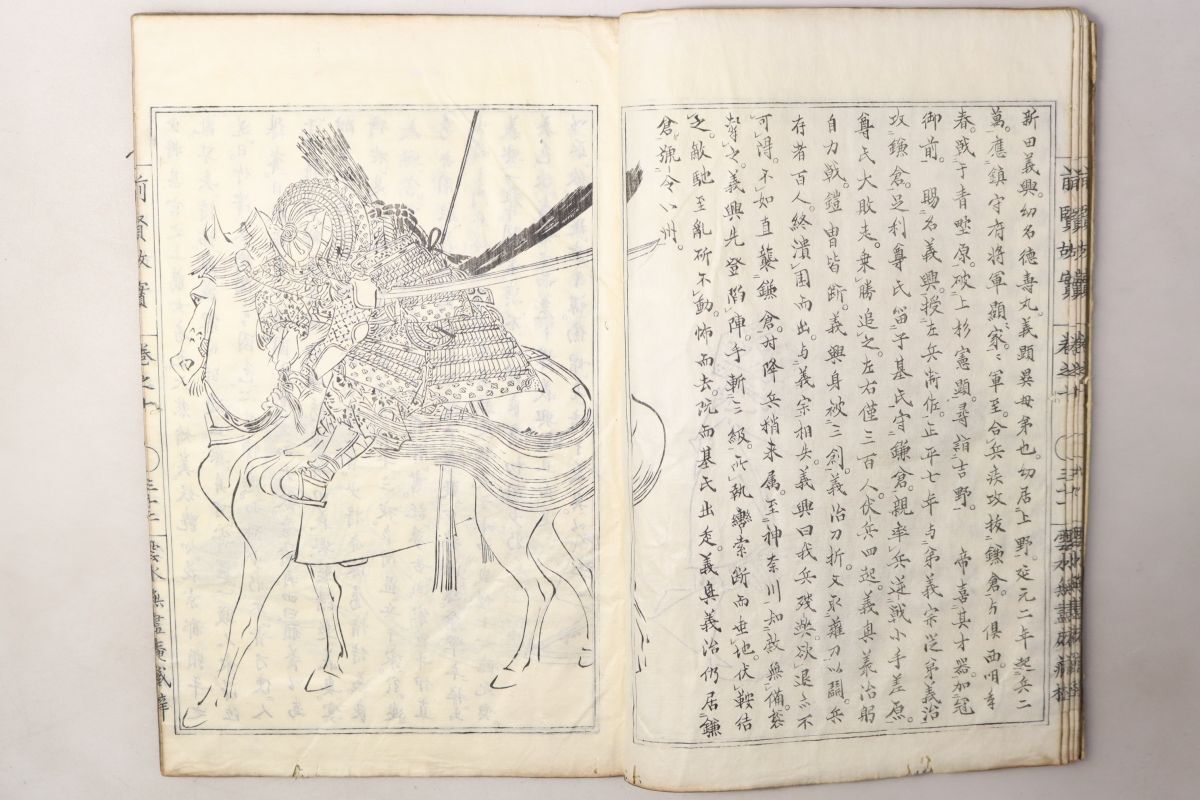 新田義興。幼名德壽丸。義顯異母弟也。幼居上野。延元二年起兵二
萬。應鎮守府將軍顯家。〻軍至。合兵疾攻拔鎌倉。与俱西。明年
春。戰于青野原。破上杉憲顯。尋詣吉野。 帝喜其才器。加冠
御前。 賜名義興。授左兵衛佐。正平七年与弟義宗從弟義治
攻鎌倉。足利尊氏留子基氏守鎌倉。親率兵逆戰小手差原。
尊氏大敗走。乗勝追之。左右僅三百人。伏兵四起。義興義治躬
自力戰。鎧冑皆斷。義興身被三創。義治刀折。又取薙刀以鬪。兵
存者百人。終潰圍而出。与義宗相失。義興曰我兵殘弊。欲退亦不
可得。不如直襲鎌倉。时降兵稍来属。至神奈川。知敵無備。襲
擊之。義興先登陷陣。手斬三級。所執轡索斷而垂地。伏鞍結
之。敵馳至亂斫不動怖而去。既而基氏出走。義興義治仍居鎌
倉。號令八州。
前賢故實
卷之十
三十二
雲水無盡庵藏梓